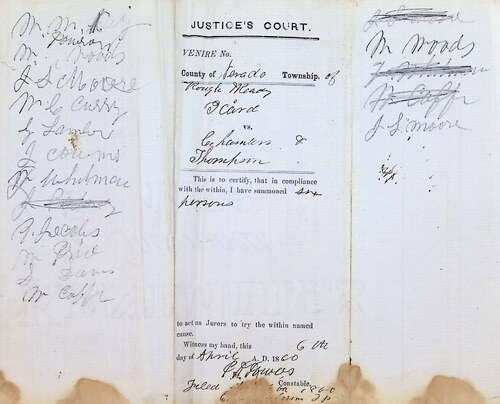 M. M.
M. Woods
J S Moore
M. C Curry
Y Lamber
J
M Whitman
J. Jacobs
M Price
J Davis
M Caffr
JUSTICE'S COURT.
VENIRE No.
County of Nevada Township. of
Rough Ready
Icard
vs.
Chambers &
Thompson
This is to certify, that in compliance
with the within, I have summoned six
persons
to act as Jurors to try the within named
cause.
Witness my hand, this 6 th
day of April A. D. 1860
Constable.
Filed
M Woods
J Whitman
M Caffr
J S Moore